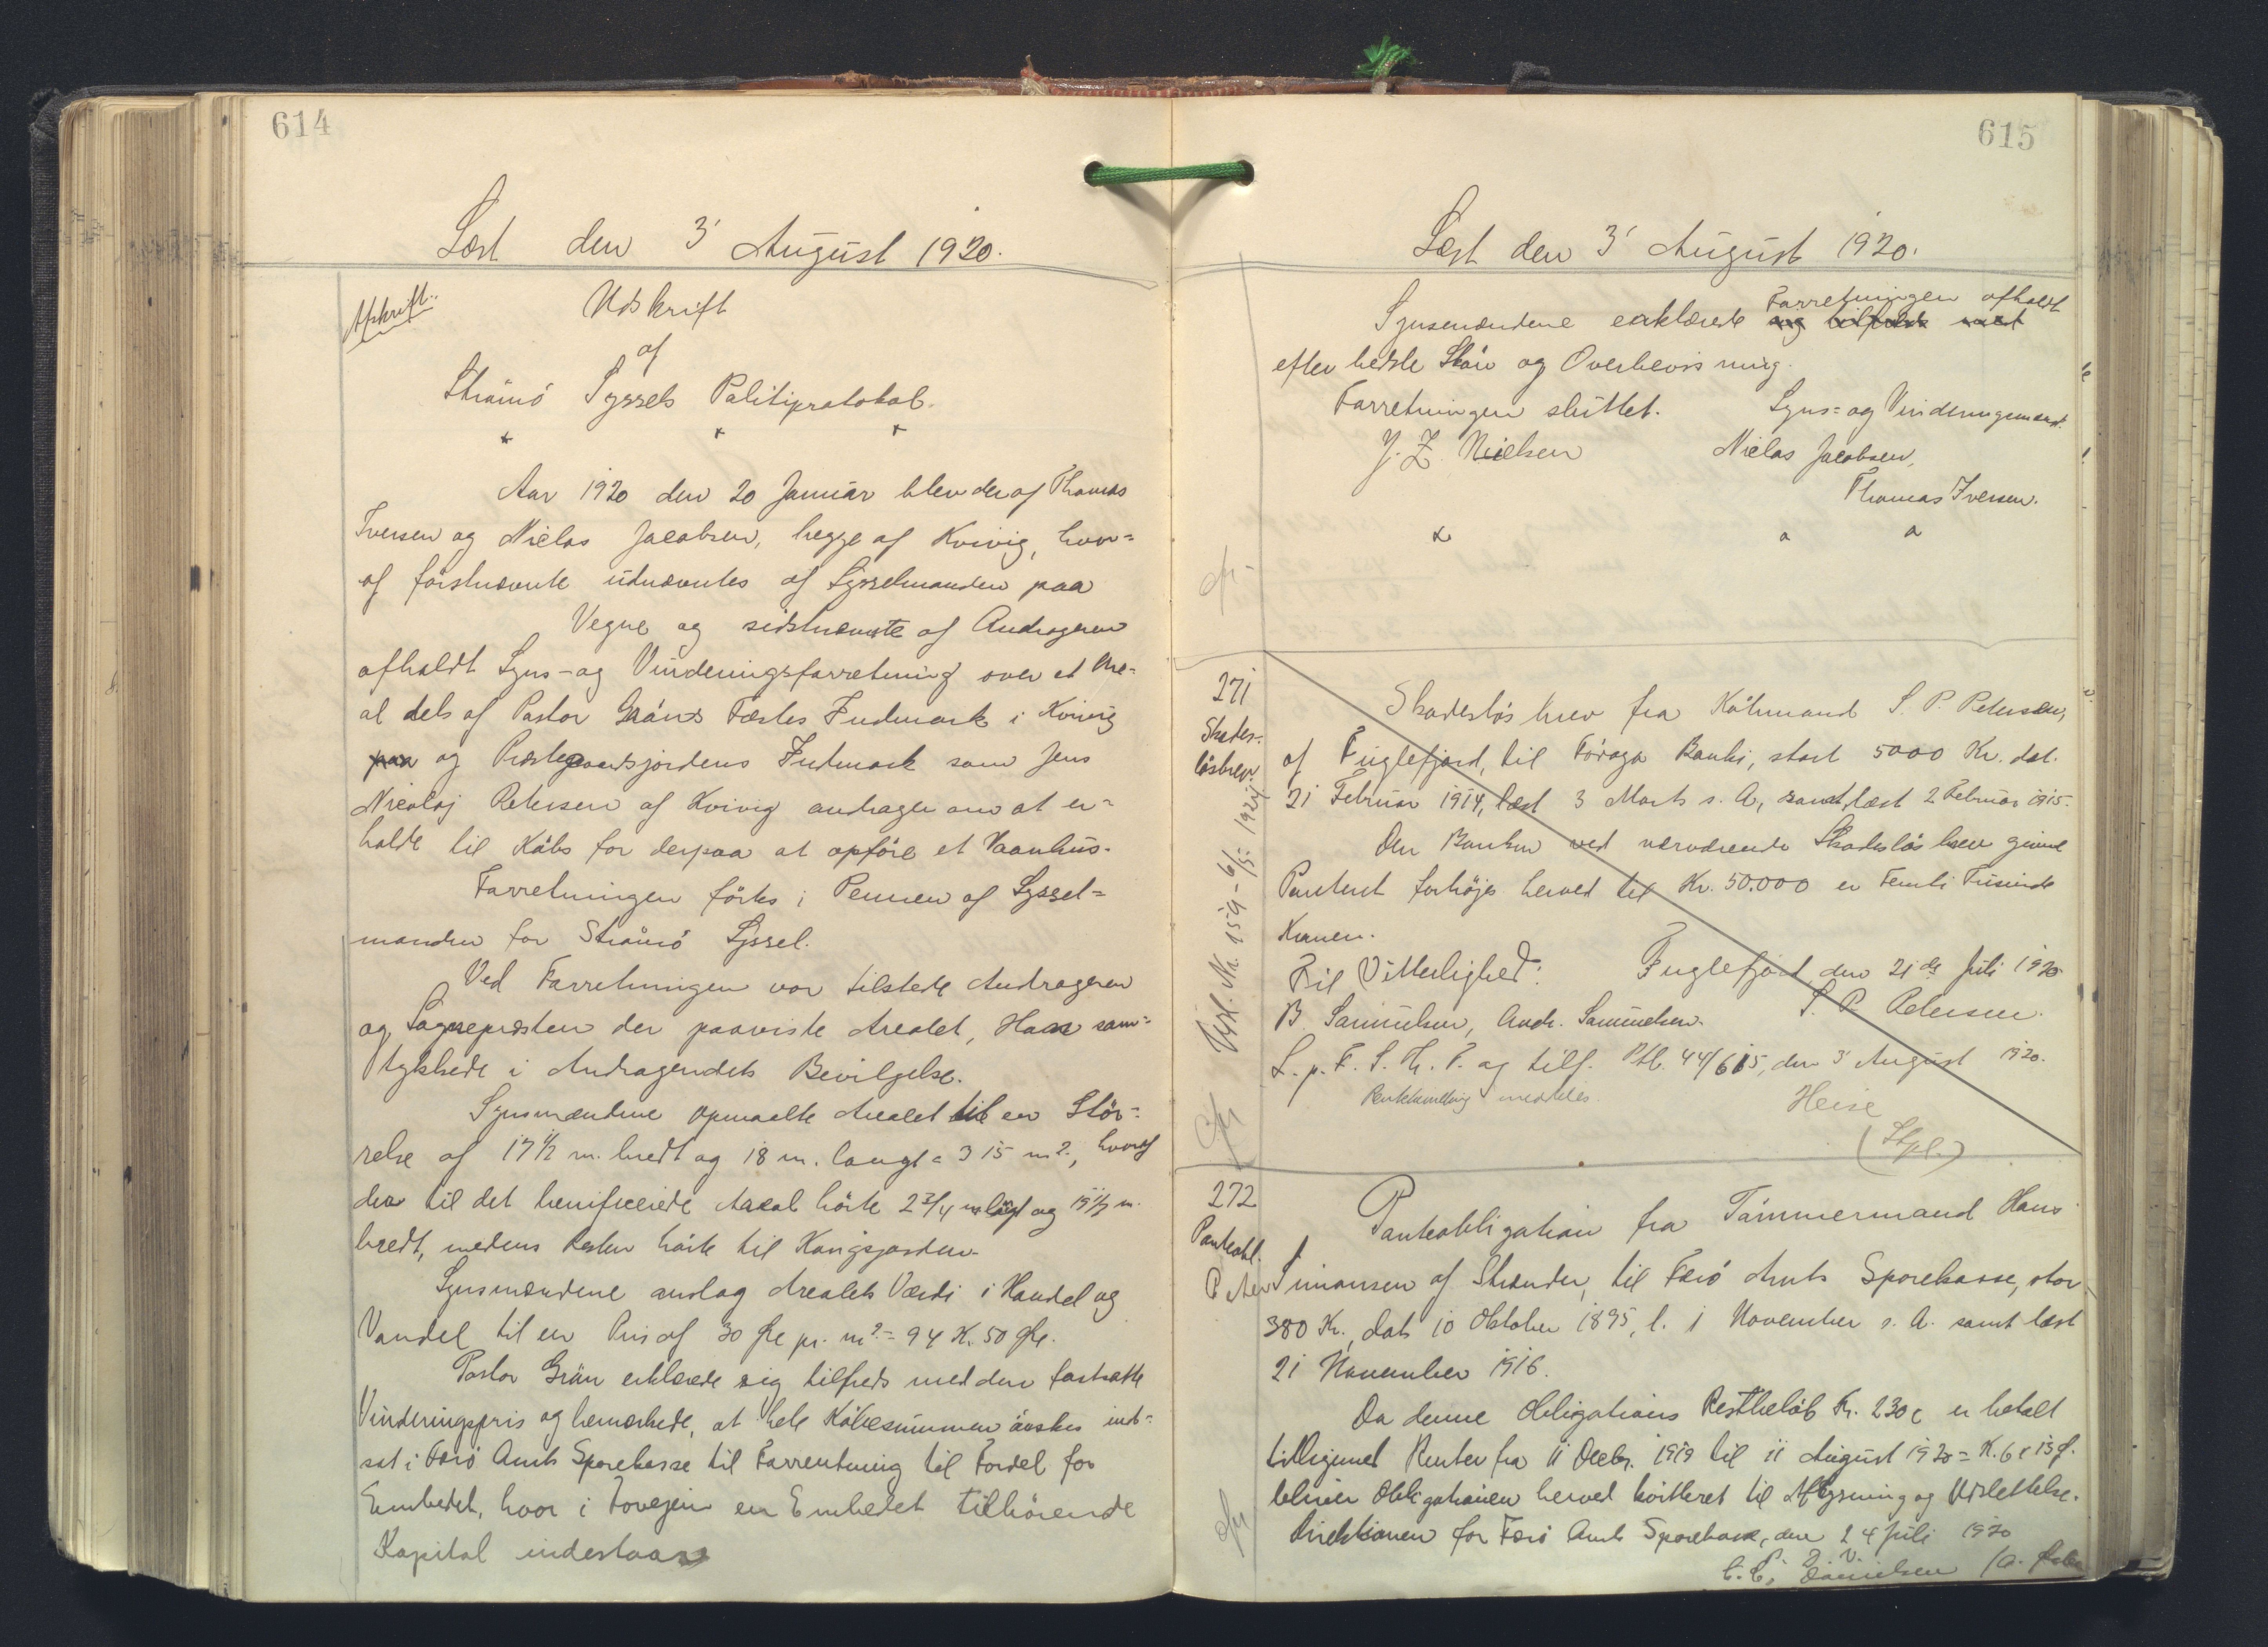 614
Læst den 3' August 1920.
Afskrift.
Udskrift
af
Strömö Syssels Politiprotokol.
Aar 1920 den 20 Januar blev der af Thomas
Iversen og Niclas Jacobsen, begge af Kvivig, hvor=
af förstnævnte udnævntes af Sysselmanden paa
Vegne og sidstnævnte af Andrageren
afholdt Syns- og Vurderingsforretning over et Are=
al dels af Pastor Gröns Fæstes Indmark i Kvivig
paa og Præstegaardsjordens Indmark som Jens
Nicolaj Petersen af Kvivig andrager om at er=
holde til Köbs for derpaa at opföre et Vaanhus.
Forretningen förtes i Pennen af Syssel=
manden for Strömö Syssel.
Ved Forretningen var tilstede Andrageren
og Sognepræsten der paaviste Arealet, Han sam=
tykkede i Andragendets Bevilgelse.
Synsmændene opmaalte Arealet til en Stör=
relse af 17½ m. bredt og 18 m. langt = 315 m²., hvoraf
der til det beneficerede Areal hörte 2¾ m langt og 17½ m.
bredt, medens Resten hörte til Kongsjorden.
Synsmændene anslog Arealets Værdi i Handel og
Vandel til en Pris af 30 Øre pr. m². = 94 K. 50 Øre.
Pastor Grön erklærede sig tilfreds med den fastsatte
Vurderingspris og bemærkede, at hele Köbesummen önskes ind=
sat i Færö Amts Sparekasse til Forrentning til Fordel for
Embedet, hvor i Forvejen en Embedet tilhörende
Kapital indestaar
615
Læst den 3' August 1920.
Synsmændene erklærede Forretningen afholdt
og tilfreds med
efter bedste Skön og Overbevisning.
Forretningen sluttet. Syns= og Vurderingsmænd.
J. Z. Nielsen Niclas Jacobsen,
Thomas Iversen.
271
Skades=
lösbrev.
Skadeslösbrev fra Köbmand S. P. Petersen,
af Fuglefjord, til Föroya Banki, stort 5000 Kr. dat.
21 Februar 1914, læst 3 Marts s. A., samt læst 2 Februar 1915.
Den Banken ved nærværende Skadeslösbrev givne
Panteret forhöjes herved til Kr. 50.000 er Femti Tusinde
Kroner.
Til Vitterlighed: Fuglefjord den 21de Juli 1920
B. Samuelsen, Andr. Samuelsen. S. P. Petersen.
L. p. F. S. Th. P. og tilf. Ptb. 44/615, den 3' August 1920.
Panthæftelse meddeles. Heise
(Stpl.)
Udsl. No. 159 - 6/5 1924
272
Panteobl.
Panteobligation fra Tömmermand Hans
Peter Simonsen af Strænder, til Færö Amts Sparekasse, stor
380 Kr., dat. 10 Oktober 1895, l. 1 November s. A. samt læst
21 November 1916.
Da denne Obligations Restbelöb Kr. 230 c er betalt
tilligemed Renter fra 11 Decbr. 1919 til 11 August 1920 = K. 6 c 13 Ø.
bliver Obligationen herved kvitteret til Aflysning og Udslettelse.
Direktionen for Færö Amts Sparekasse, den 24 Juli 1920
Danielsen